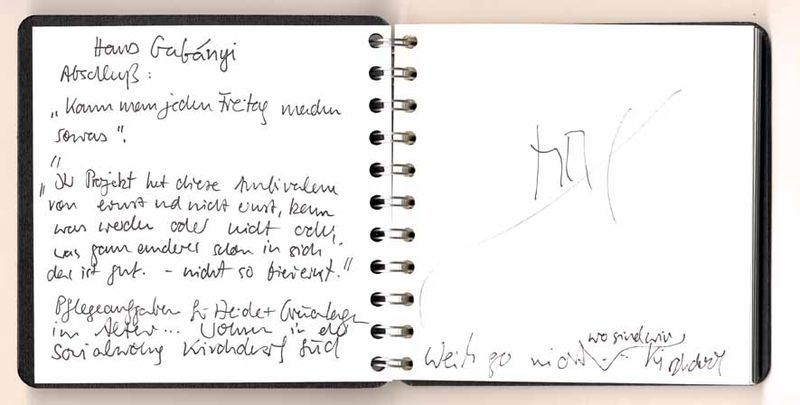 Hans Gabányi
Abschluß:
„Kann man jeden Freitag machen
sowas".
"
„Ihr Projekt hat diese Ambivalenz
von ernst und nicht ernst, kann
was werden oder nicht oder,
was ganz anderes schon in sich,
das ist gut. - nicht so bierernst."
Pflegeaufgaben für Heide +
im Alter... Wohnen in der
Sozialwohng Kirchdorf Süd
wo sind wir
Weiß go nicht Kirchdorf